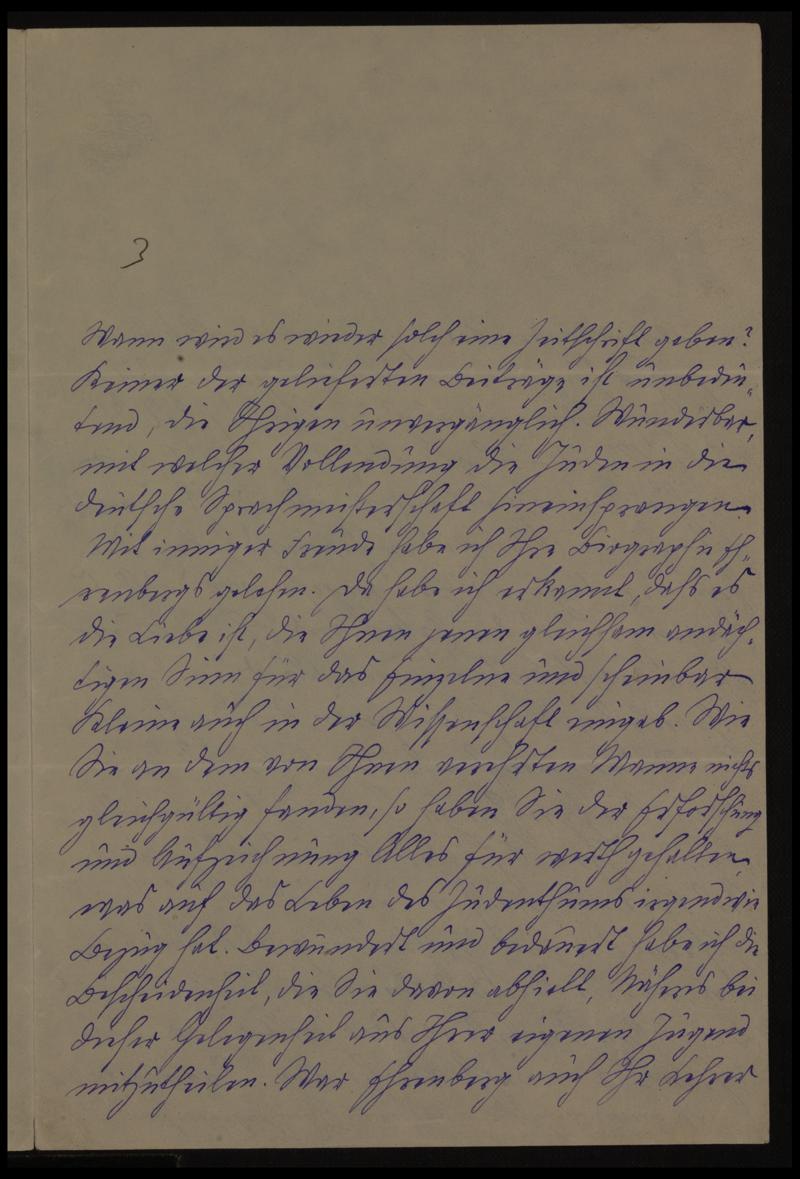 3
Wann wird es wieder solch eine Zeitschrift geben?
Keiner der gelieferten Beiträge ist unbedeu-
tend, die Ihrigen unvergänglich. Wunderbar,
mit welcher Vollendung die Juden in die
deutsche Sprachmeisterschaft hineinsprangen.
Mit inniger Freude habe ich Ihre Biographie Eh-
renbergs gelesen. Da habe ich erkannt, daß es
die Liebe ist, die Ihnen jenen gleichsam andäch-
tigen Sinn für das Einzelne und scheinbar
Kleine auch in der Wissenschaft eingab. Wie
Sie an dem von Ihnen verehrten Manne nichts
gleichgültig fanden, so haben Sie der Erforschung
und Aufzeichnung Alles für werth gehalten,
was auf das Leben des Judenthums irgendwie
Bezug hat. Bewundert und bedauert habe ich die
Bescheidenheit, die Sie davon abhielt, Näheres bei
dieser Gelegenheit aus Ihrer eigenen Jugend
mitzutheilen. War Ehrenberg auch Ihr Lehrer